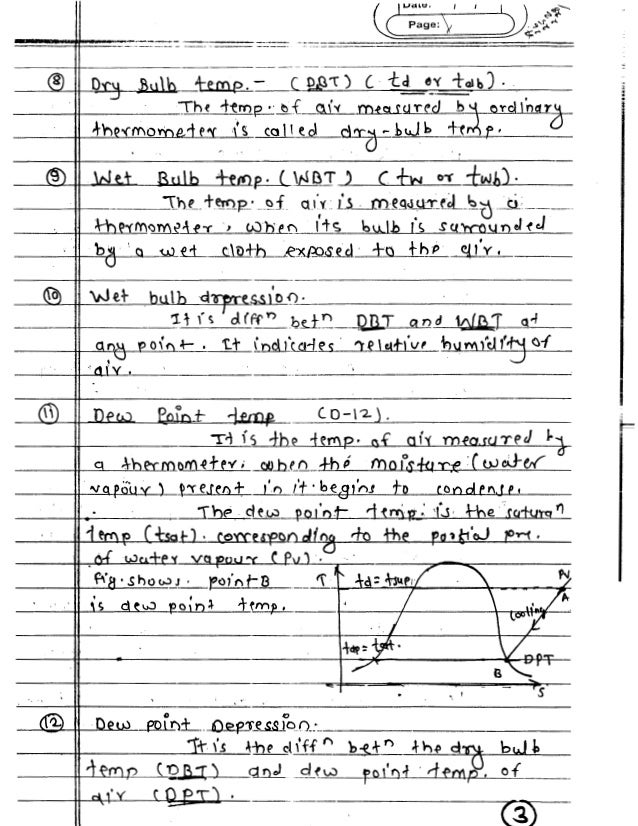 Date: / /
Page:
⑧ Dry Bulb temp. - (DBT) ( td or tdb).
The temp. of air measured by ordinary
thermometer is called dry-bulb temp.
⑨ Wet Bulb temp. (WBT) (tw or twb).
The temp. of air is measured by a
thermometer, when its bulb is surrounded
by a wet cloth exposed to the air.
⑩ Wet bulb depression.
It is diffⁿ betⁿ DBT and WBT at
any point. It indicates relative humidity of
air.
⑪ Dew Point temp (D-12).
It is the temp. of air measured by
a thermometer, when the moisture (water
vapour) present in it begins to condense.
The dew point temp. is the saturaⁿ
temp (tsat). corresponding to the partial pre.
of water vapour (Pv).
Fig. shows. point B
is dew point temp.
T td = tsup. Pv
A
cooling
tdp = tsat.
DPT
B
S
⑫ Dew point Depression.
It is the diffⁿ betⁿ the dry bulb
temp (DBT) and dew point temp. of
air (DPT).
③